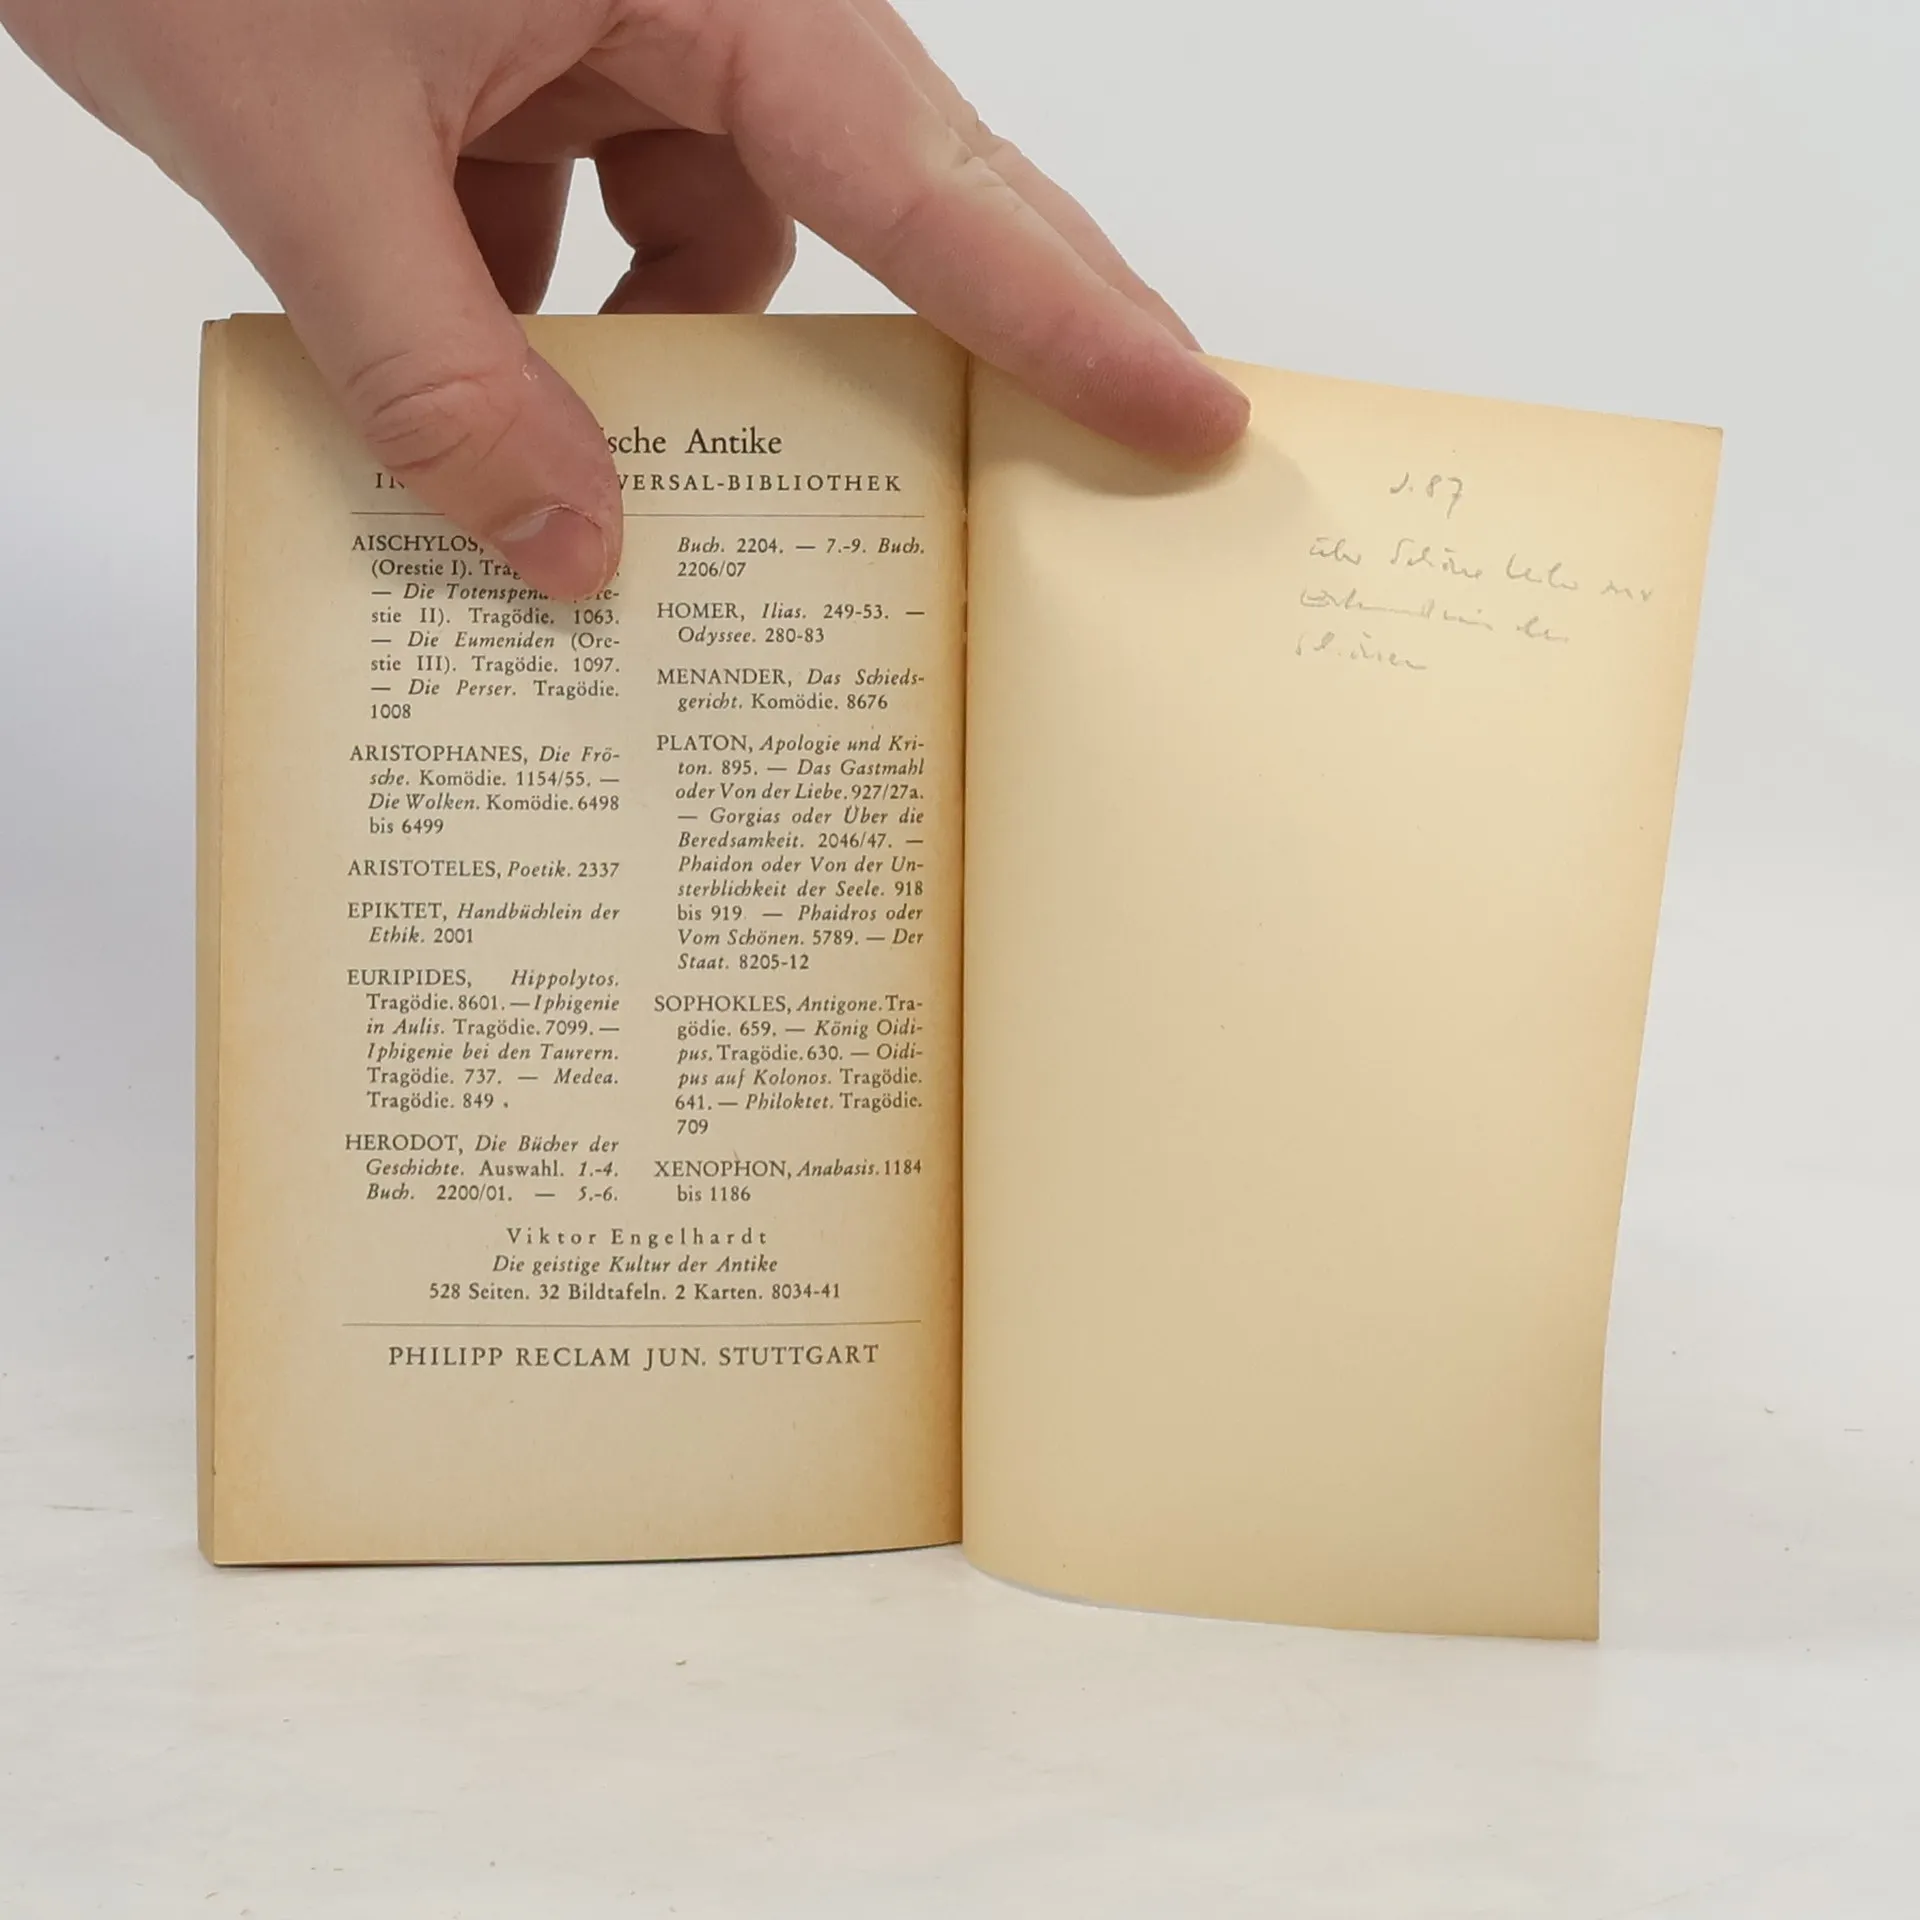 sche Antike
VERSAL-BIBLIOTHEK
AISCHYLOS,
(Orestie I). Trag
— Die Totenspen
stie II). Tragödie. 1063.
— Die Eumeniden (Ore-
stie III). Tragödie. 1097.
— Die Perser. Tragödie.
1008
ARISTOPHANES, Die Frö-
sche. Komödie. 1154/55. —
Die Wolken. Komödie. 6498
bis 6499
ARISTOTELES, Poetik. 2337
EPIKTET, Handbüchlein der
Ethik. 2001
EURIPIDES, Hippolytos.
Tragödie. 8601. — Iphigenie
in Aulis. Tragödie. 7099. —
Iphigenie bei den Taurern.
Tragödie. 737. — Medea.
Tragödie. 849.
HERODOT, Die Bücher der
Geschichte. Auswahl. 1.-4.
Buch. 2200/01. — 5.-6.
Buch. 2204. — 7.-9. Buch.
2206/07
HOMER, Ilias. 249-53. —
Odyssee. 280-83
MENANDER, Das Schieds-
gericht. Komödie. 8676
PLATON, Apologie und Kri-
ton. 895. — Das Gastmahl
oder Von der Liebe. 927/27a.
— Gorgias oder Über die
Beredsamkeit. 2046/47. —
Phaidon oder Von der Un-
sterblichkeit der Seele. 918
bis 919. — Phaidros oder
Vom Schönen. 5789. — Der
Staat. 8205-12
SOPHOKLES, Antigone. Tra-
gödie. 659. — König Oidi-
pus. Tragödie. 630. — Oidi-
pus auf Kolonos. Tragödie.
641. — Philoktet. Tragödie.
709
XENOPHON, Anabasis. 1184
bis 1186
Viktor Engelhardt
Die geistige Kultur der Antike
528 Seiten. 32 Bildtafeln. 2 Karten. 8034-41
PHILIPP RECLAM JUN. STUTTGART
87
über Schöne